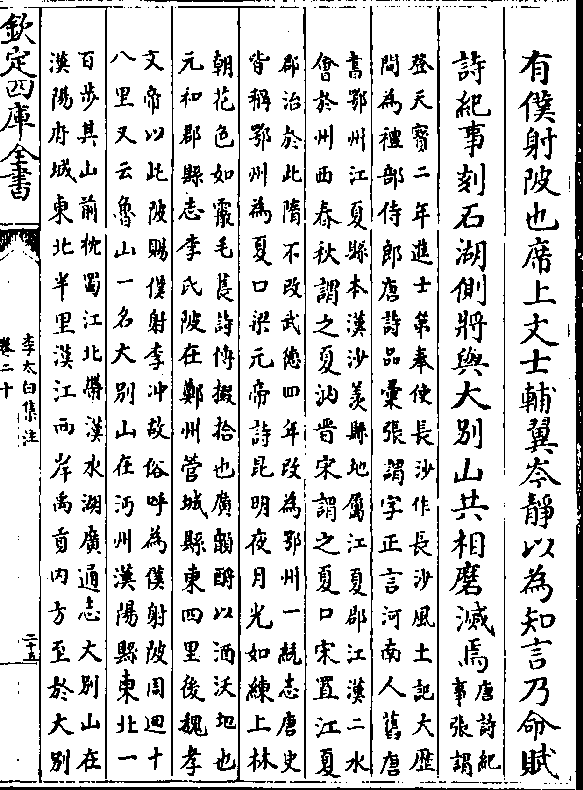 有僕射陂也席上文士輔翼岑靜以為知言乃命賦
詩紀事刻石湖側將與大別山共相磨滅焉
唐詩紀
事張謂
登天寶二年進士第奉使長沙作長沙風土記大歷
間為禮部侍郎唐詩品彙張謂字正言河南人舊唐
書鄂州江夏縣本漢沙羨縣地屬江夏郡江漢二水
會於州西春秋謂之夏汭晉宋謂之夏口宋置江夏
郡治於此隋不改武德四年改為鄂州一統志唐史
皆稱鄂州為夏口梁元帝詩昆明夜月光如練上林
朝花色如霰毛萇詩傳掇拾也廣韻酹以酒沃地也
元和郡縣志李氏陂在鄭州管城縣東四里後魏孝
文帝以此陂賜僕射李冲故俗呼為僕射陂周迴十
八里又云魯山一名大別山在沔州漢陽縣東北一
百步其山前枕蜀江北帶漢水湖廣通志大別山在
漢陽府城東北半里漢江西岸禹貢内方至於大別
欽定四庫全書
李太白集注
卷二十
二十五